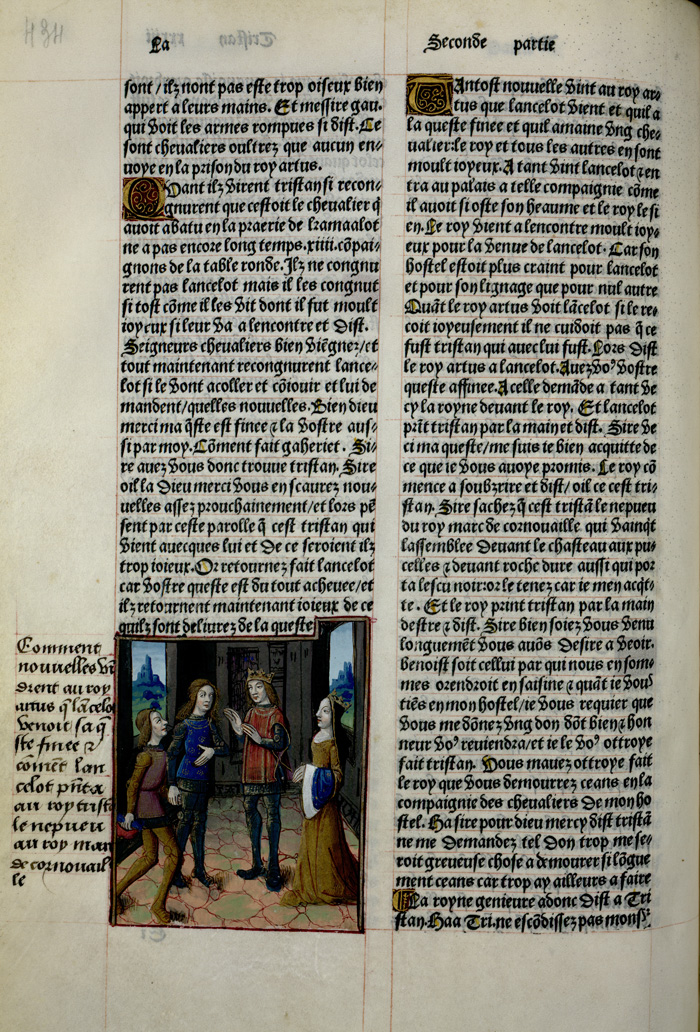 La
Seconde partie
sont / ilz nont pas este trop oiseux bien
appert a leurs mains. Et messire gau.
qui voit les armes rompues si dist. Ce
sont chevaliers oultrez que aucun en-
uoye en la prison du roy artus.
Quant ilz virent tristan si recon-
gnurent que cestoit le chevalier q̃
auoit abatu en la praerie de kramaalot
ne a pas encore long temps.xiiii.cõpai-
gnons de la table ronde. Ilz ne congnu
rent pas lancelot mais il les congnut
si tost cõme il les vit dont il fut moult
ioyeux si leur va a lencontre et dist.
Seigneurs chevaliers bien viẽgnez/et
tout maintenant recongnurent lance-
lot si le vont acoller et cõiouir et lui de
mandent/quelles nouuelles. Bien dieu
merci ma q̃ste est finee ⁊ la vostre aus-
si par moy. Cõment fait gaheriet. Si-
re auez vous donc trouue tristan. Sire
oil la Dieu merci vous en scaurez nou-
uelles assez prouchainement/et lors pẽ
sent par ceste parolle q̃ cest tristan qui
vient auecques lui et de ce seroient ilz
trop ioieux. Or retournez fait lancelot
car vostre queste est du tout acheuee/et
ilz retournent maintenant ioieux de ce
quilz sont deliurez de la queste
Comment
nouuelles vĩ
drent au roy
artus q̃ lãcelot
venoit sa q̃
ste finee ⁊
cõmẽt lan
celot pñta
au roy tristã
le nepueu
au roy marc
de cornouail
le
Tantost nouuelle vint au roy ar-
tus que lancelot vient et quil a
la queste finee et quil amaine vng che-
ualier.le roy et tous les autres en sont
moult ioyeux. A tant vint lancelot ⁊ en
tra au palais a telle compaignie cõme
il auoit si oste son heaume et le roy le si
en. Le roy vient a lencontre moult ioy-
eux pour la venue de lancelot. Car son
hostel estoit plus craint pour lancelot
et pour son lignage que pour nul autre
Quãt le roy artus voit lãcelot si le re-
coit ioyeusement il ne cuidoit pas q̃ ce
fust tristan qui auec lui fust. Lors dist
le roy artus a lancelot. Auez voꝰ vostre
queste affinee. A celle demãde a tant ve
cy la royne deuant le roy. Et lancelot
prĩt tristan par la main et dist. Sire ve
ci ma queste/me suis ie bien acquitte de
ce que ie vous auoye promis. Le roy cõ
mence a soubzrire et dist/ oil ce cest tri-
stan. Sire sachez q̃ cest tristã le nepueu
du roy marc de cornouaille qui vainq̃t
lassemblee deuant le chasteau aux pu-
celles ⁊ deuant roche dure aussi qui por
ta lescu noir:or le tenez car ie men acq̃t-
te. Et le roy print tristan par la main
destre ⁊ dist. Sire bien soiez vous venu
longuemẽt vous auõs desire a veoir.
benoist soit cellui par qui nous en som-
mes orendroit en saisine ⁊ quãt ie voꝰ
tiẽs en mon hostel/ie vous requier que
vous me dõnez vng don dõt bien ⁊ hon
neur voꝰ reuiendra/et ie le voꝰ ottroye
fait tristan. Vous mauez ottroye fait
le roy que vous demourrez ceans en la
compaignie des chevaliers de mon ho
stel. Ha sire pour dieu mercy dist tristã
ne me demandez tel don trop me se-
roit greueuse chose a demourer si lõgue
ment ceans car trop ay ailleurs a faire
La royne genieure adonc dist a Tri
stan. Haa Tri. ne escõdissez pas monsʳ.